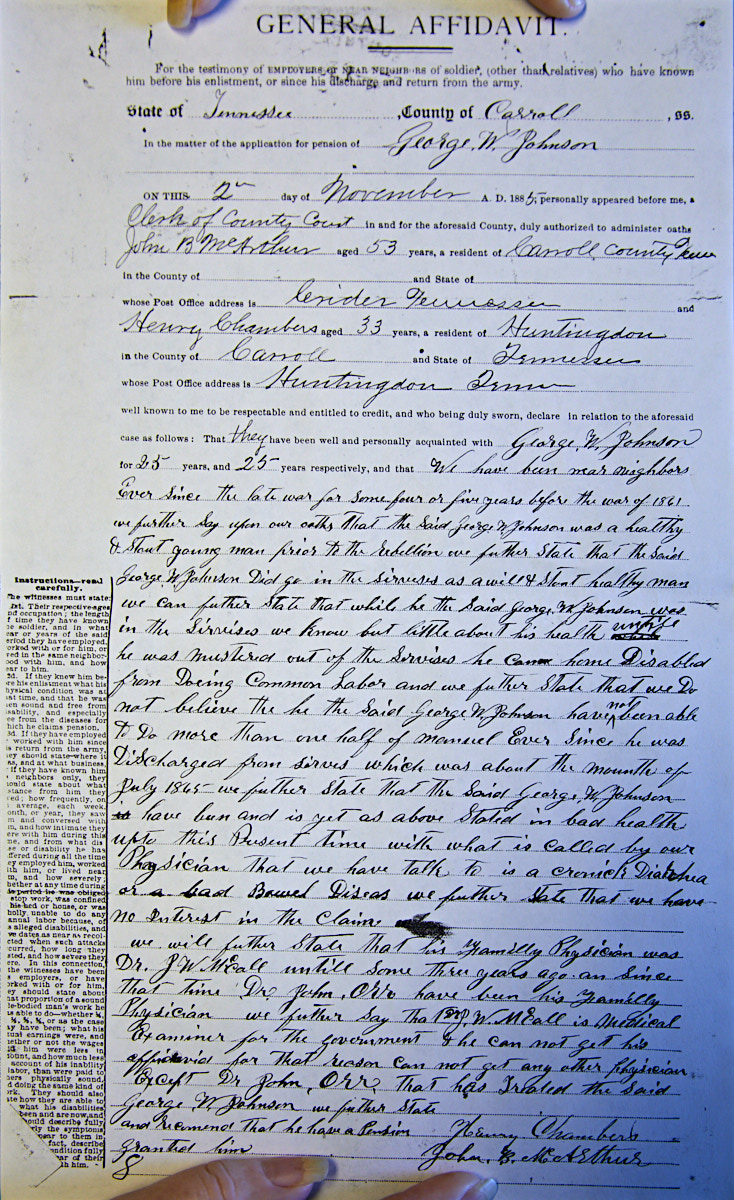 GENERAL AFFIDAVIT.
For the testimony of EMPLOYERS OF NEAR NEIGHBORS of soldier, (other than relatives) who have known
him before his enlistment, or since his discharge and return from the army.
State of Tennessee , County of Carroll , SS.
In the matter of the application for pension of George. W. Johnson
ON THIS 2" day of November A. D. 1885, personally appeared before me, a
Clerk of County Court in and for the aforesaid County, duly authorized to administer oaths
John B McArthur aged 53 years, a resident of Carroll County Tenn
in the County of and State of
whose Post Office address is Crider Tennessee and
Henry Chambers aged 33 years, a resident of Huntingdon
in the County of Carroll and State of Tennessee
whose Post Office address is Huntingdon Tenn
well known to me to be respectable and entitled to credit, and who being duly sworn, declare in relation to the aforesaid
case as follows: That they have been well and personally acquainted with George. W. Johnson
for 25 years, and 25 years respectively, and that We have been near neighbors
Ever Since the late war for some four or five years before the war of 1861
we further Say upon our oaths that the Said George. W Johnson was a healthy
& Stout young man prior to the rebellion we futher State that the Said
George. W. Johnson Did go in the Sirvises as a will & Stout healthy man
we can futher State that while he the Said George. W. Johnson was
in the Sirvises we know but little about his health untile
he was mustered out of the Servises he Came home Disabled
from Doeing Common Labor and we futher State that we Do
not believe the he the Said George W. Johnson have not been able
to Do more than one half of manuel Ever Since he was
Discharged from sirves which was about the mounth of
July 1865 we futher State that the Said George. W. Johnson
have bun and is yet as above Stated in bad health
upto this Present time with what is called by our
Physician that we have talk to is a cronick Diarrhea
or a bad Bowel Diseas we futher State that we have
no Interest in the Claime
we will futher State that his Familly Physician was
Dr. J W. McCall untill Some three years ago an Since
that time Dr. John, Orr have been his Familly
Physician we futher Say tha Dr J. W. McCall is Medical
Examiner for the government & he can not get his
affidavid for that reason can not get any other physician
Except Dr John, Orr, that has Treated the Said
George W Johnson we futher State
and recomend that he have a Pension Henry Chambers
granted him John. B. McArthur
Instructions—read
carefully.
The witnesses must state:
1st. Their respective ages
nd occupation; the length
f time they have known
he soldier, and in what
ear or years of the said
eriod they have employed,
orked with or for him, or
red in the same neighbor-
ood with him, and how
ear to him.
2d. If they knew him be-
re his enlistment what his
hysical condition was at
at time, and that he was
en sound and free from
isability, and especially
ee from the diseases for
hich he claims pension.
3d. If they have employed
worked with him since
is return from the army,
ey should state—where it
as, and at what business
if they have known him
neighbors only, they
ould state about what
stance from him they
ved; how frequently, on
average, each week,
onth, or year, they saw
m and conversed with
m, and how intimate they
ere with him during this
me, and from what dis
se or disability he has
ffered during all the time
ey employed him, worked
th him, or lived near
m, and how severely
hether at any time during
he period he was obliged
stop work, was confined
his bed or house, or was
holly unable to do any
anual labor because, of
s alleged disabilities, and
ve dates as near as recol-
cted when such attacks
curred, how long they
sted, and how severe they
ere. In this connection,
the witnesses have been
s employers, or have
rked with or for him,
ey should state about
at proportion of a sound
le-bodied man's work he
as able to do—whether ¼,
½, ¾, or as the case
y have been; what his
tual earnings were, and
hether or not the wages
d him were less in
ount, and how much less
account of his inability
labor, than were paid to
hers physically sound,
d doing the same kind of
rk. They should also
te how they are able to
what his disabilities
been and are now, and
ould describe fully
ly the symptoms
pear to them in
fact, describe
ndition fully
ar of their
th him.